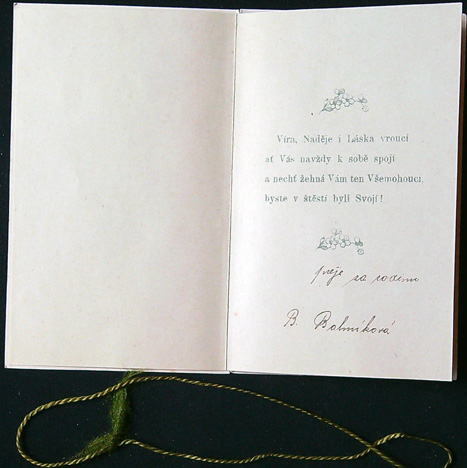 Víra, Naděje i Láska vroucí
ať Vás navždy k sobě spojí
a nechť žehná Vám ten Všemohoucí,
byste v štěstí byli Svojí!
přeje za rodinu
B.